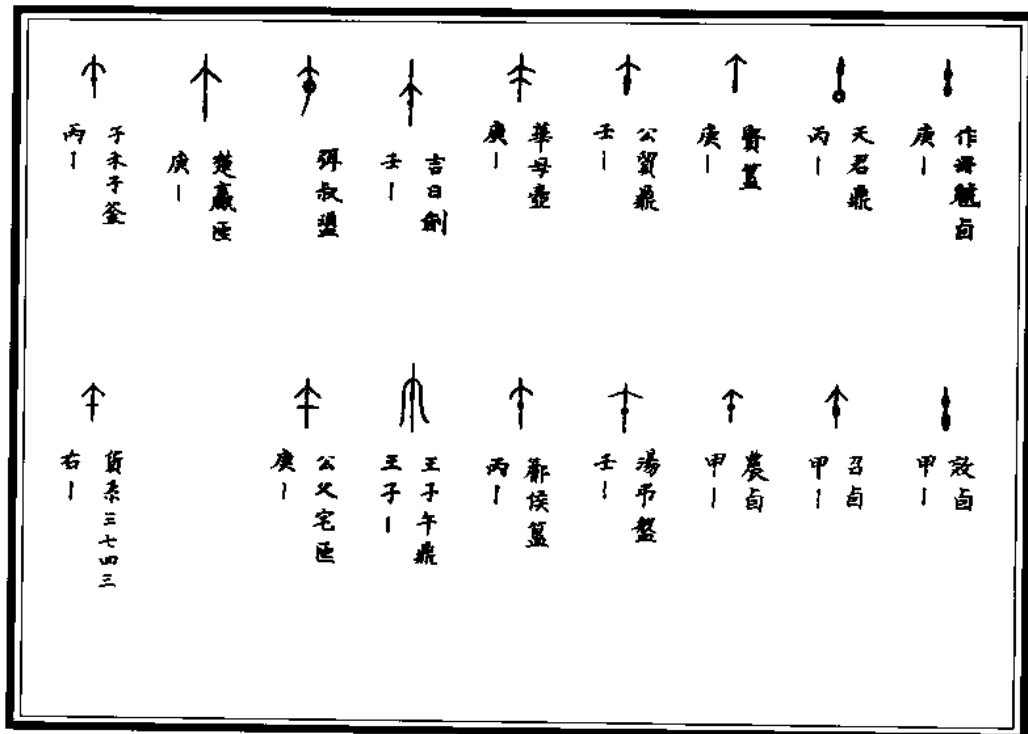 作卣
庚丨
天君鼎
丙丨
賢簋
庚丨
公貿鼎
壬丨
華母壺
庚丨
吉日劍
壬丨
弭叔盨
楚嬴匜
庚丨
子禾子釜
丙丨
效卣
甲丨
召卣
甲丨
農卣
甲丨
湯弔盤
壬丨
侯簋
丙丨
王子午鼎
王子丨
公父宅匜
庚丨
貨系三七四三
右丨